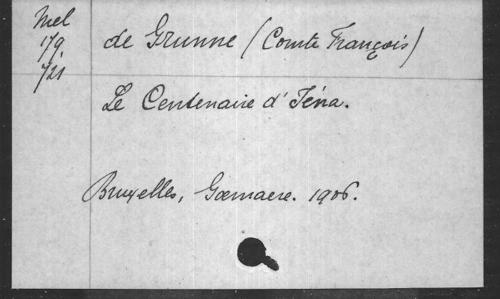 Mel
179
721
de Grunne (Comte François)
Le Centenaire d'Iéna.
Bruxelles, Goemaere. 1906.